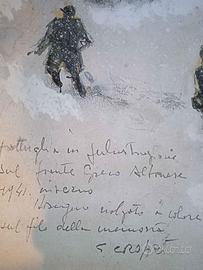 pattuglia in perlustrazione
sul fronte Greco Albanese
1941. inverno
Disegno svolto a colori
sul filo della memoria